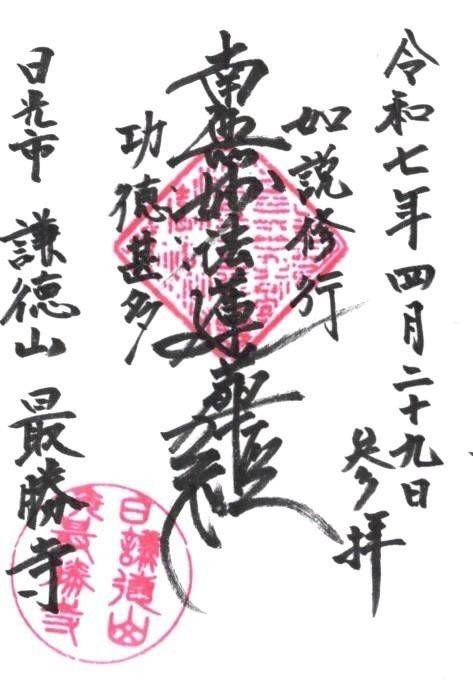 令和七年四月二十九日
参拝
如説修行
南無妙法蓮華経
功徳甚多
日光市 謙徳山 最勝寺